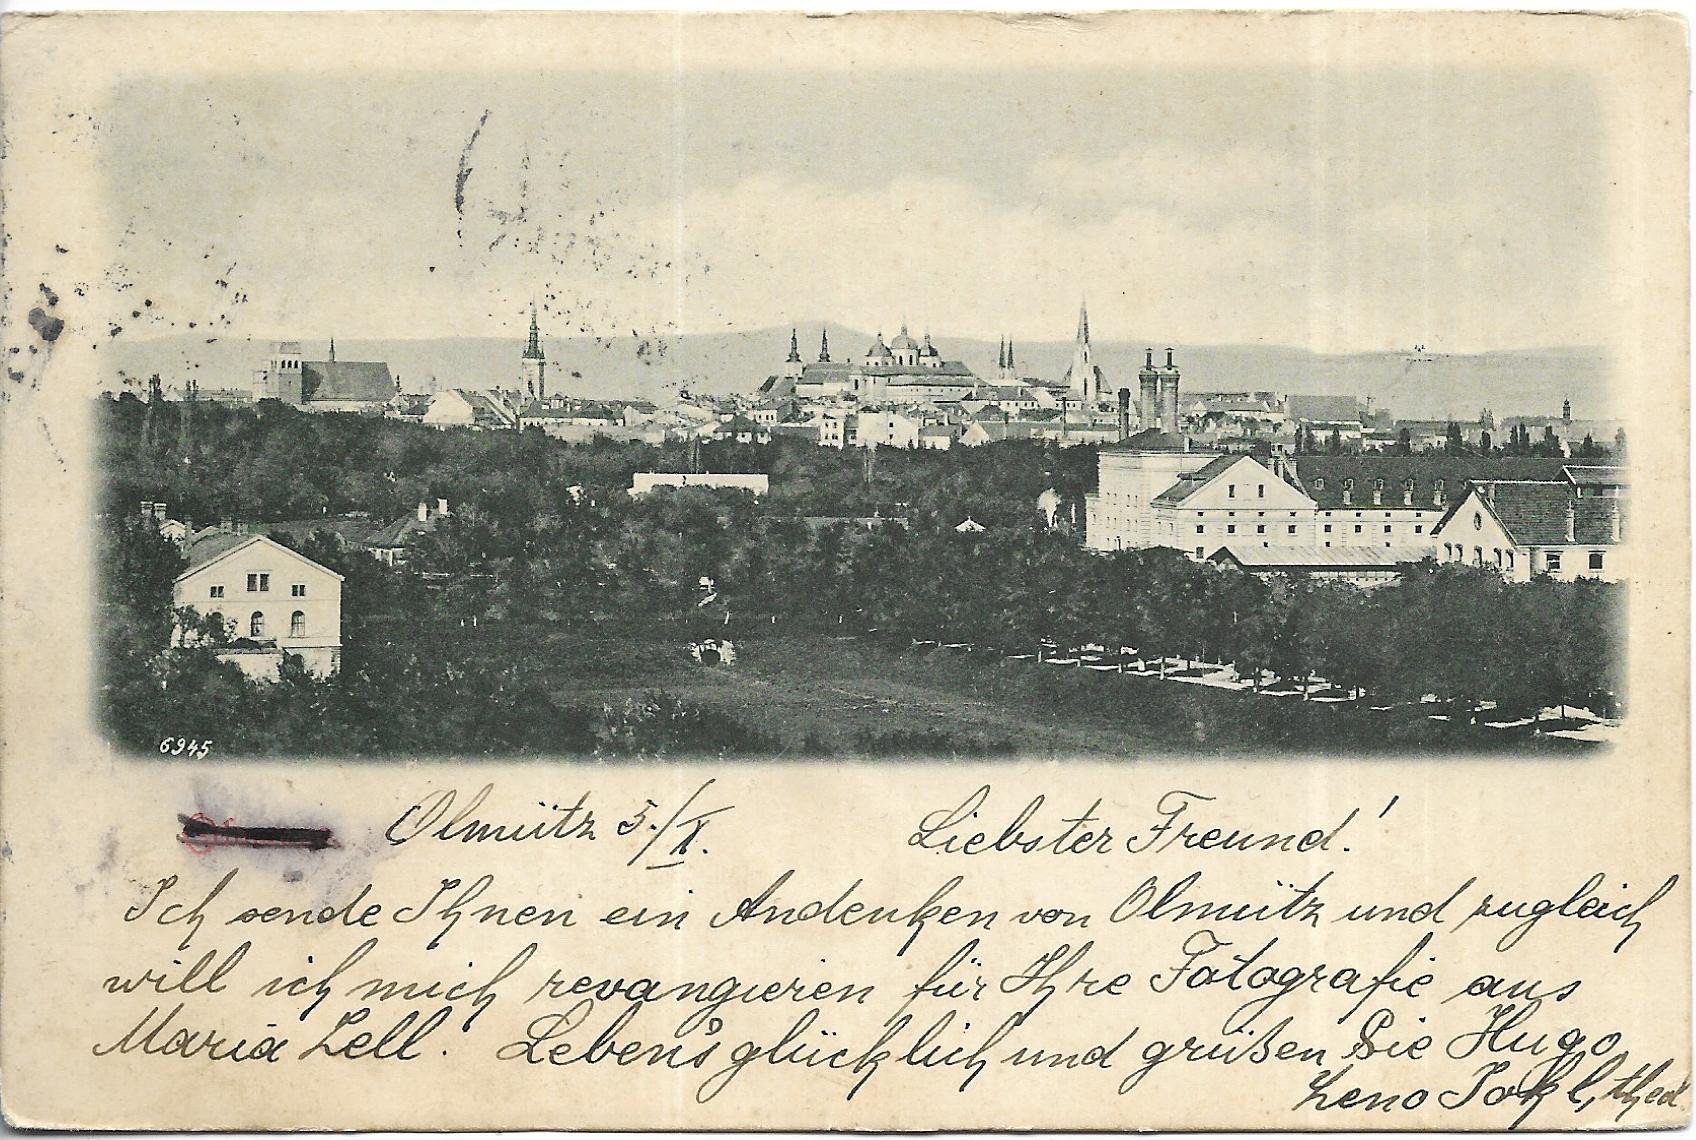 6945
Olmütz 5./X. Liebster Freund!
Ich sende Ihnen ein Andenken von Olmütz und zugleich
will ich mich revangieren für Ihre Fotografie aus
Maria Zell. Leben's glücklich und grüßen Sie Hugo
Zeno Jokl, theol